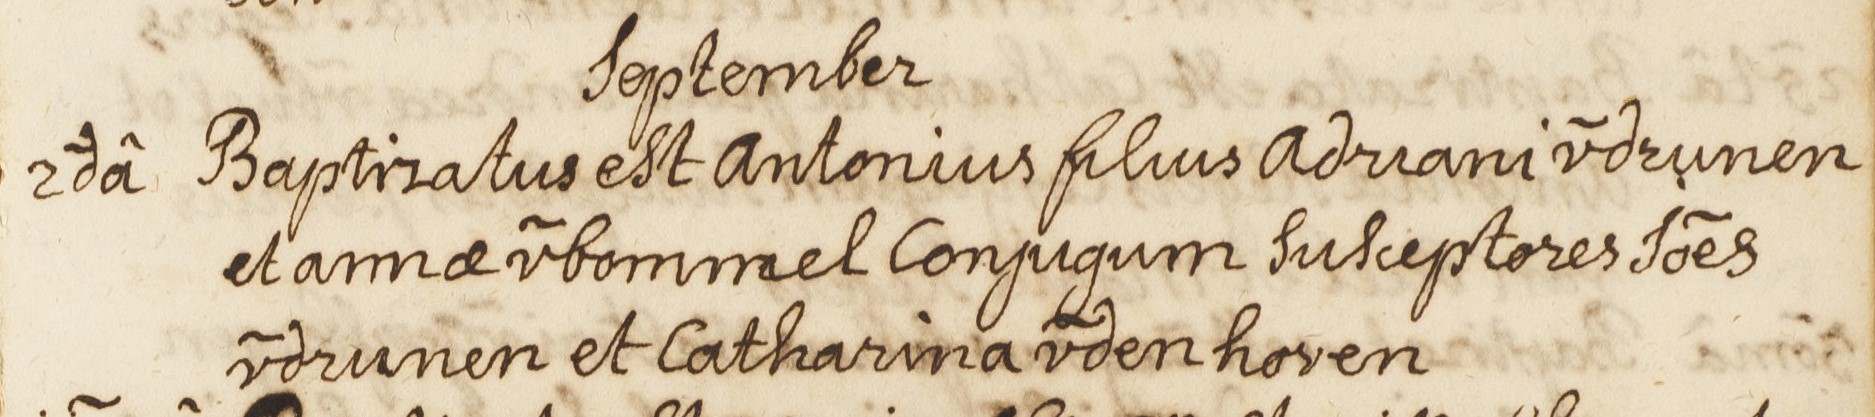 September
2dã Baptizatus est Antonius filius Adriani ṽdrunen
et annæ ṽbommel Conjugum Susceptores Jões
ṽdrunen et Catharina ṽden hoven